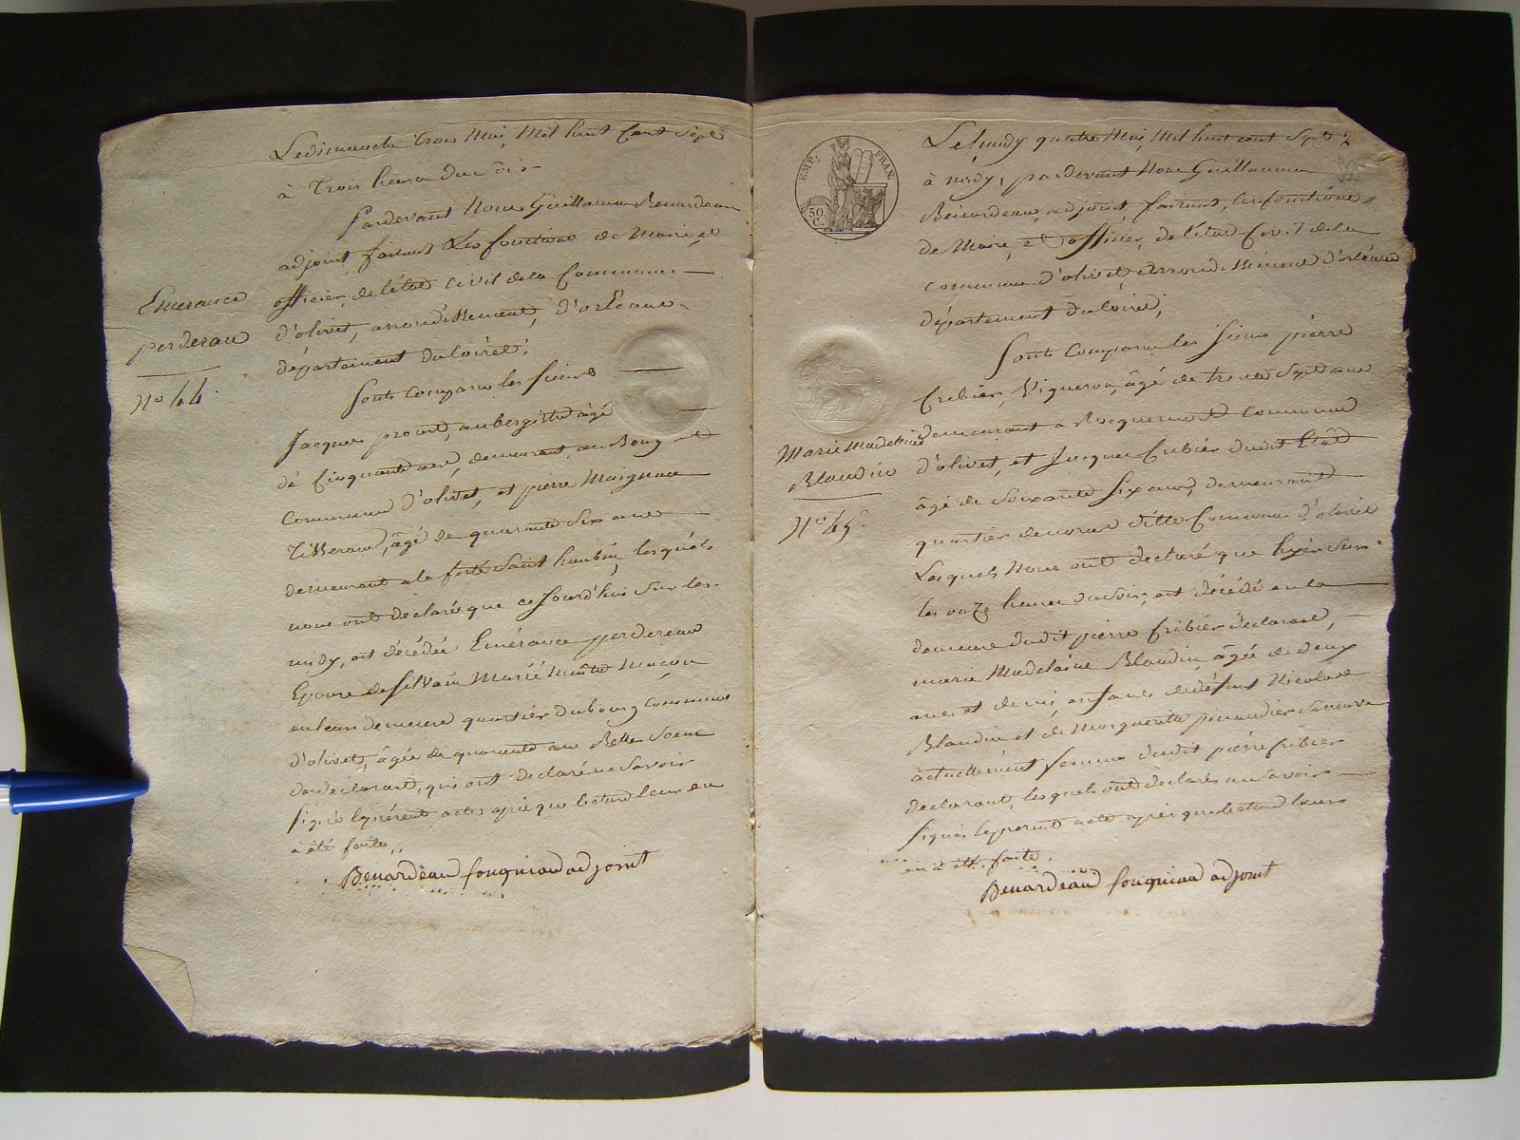 Le dimanche trois Mai, Mil huit Cent Sept
à Trois heures du soir
Pardevant Nous Guillaume Benardeau
adjoint faisant Les fonctions de Maire, et
officier de l'état Civil de la Commune
d'olivet, arrondissement, d'orléans
département du loiret;
Sont Comparus les Sieurs
Jacques prout, aubergiste âgé
de Cinquante ans, demeurant, au Bourg
Commune d'olivet, et pierre Maignan
Tisseran, âgé de quarante Six ans
demeurant a la ferté Saint haubin, lesquels
nous ont déclaré que ce Jourd'hui Sur les
midy, est décédée Emérance perdereau
Epouse de Silvain Marié Maçon
en leur demeure quartier du bourg Commune
d'olivet, âgée de quarante ans Belle Soeur
du déclarant, qui ont déclaré ne Savoir
signé le présent acte, après que lecture leur en
a été faite,
Benardeau fouqniau adjoint
Emerance
perdereau
No 44
EMP. FRAN.
50 C.
2
Le lundy quatre Mai, Mil huit cent Sept
à midy, pardevant Nous Guillaume
Benardeau, adjoint, faisant, les fonctions
de Maire, et officier, de l'état Civil de la
commune d'olivet arrondissement d'orléans
département du loiret;
Sont Comparus les Sieurs pierre
fribier, Vigneron, âgé de trente Sept ans
demeurant a Nocquemort Commune
d'olivet, et Jacques fribier dudit Etat
âgé de Soixante Six ans, demeurant
quartier de ditte Commune d'olivet
Lesquels Nous ont déclaré que hyer Sur
les onze heures du Soir, est décédé en la
demeure dudit pierre fribier déclarant,
marie Madelaine Blandin, âgée de deux
ans et demi, enfant de défunt Nicolas
Blandin et de Marguerite Sa veuve
actuellement femme dudit pierre fribier
déclarant, lesquels ont déclarés ne Savoir
Signé le present acte après que lecture leurs
en a été faite.
Benardeau fouqniau adjoint
Marie Madelaine
Blandin
No 45